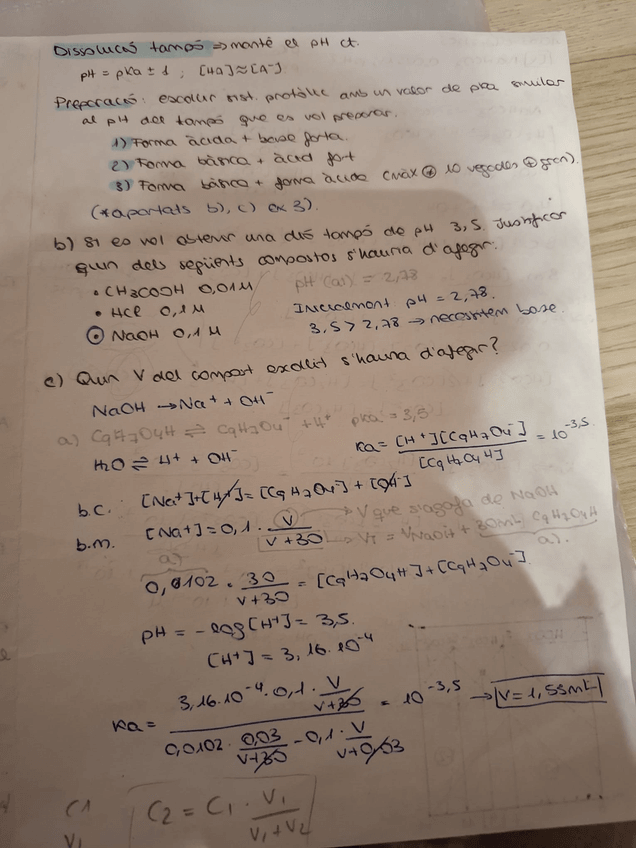 Dissolució tampó ⇒ manté el pH ct.
pH = pKa ± 1 ; [HA] ≈ [A⁻]
Preparació: escollir sist. protolític amb un valor de pKa similar
al pH del tampó que es vol preparar.
1) Forma àcida + base forta.
2) Forma bàsica + àcid fort
3) Forma bàsica + forma àcida (màx ⊕ 10 vegades ⊕ gran).
(*apartats b), c) ex 3).
b) Si es vol obtenir una dis tampó de pH 3,5. Justificar
quin dels següents compostos s'hauria d'afegir.
• CH3COOH 0,01M pH (as) = 2,78
• HCl 0,1M Increment pH = 2,78.
• NaOH 0,1M 3,5 > 2,78 → necessitem base.
c) Quin V del compost escollit s'hauria d'afegir?
NaOH → Na⁺ + OH⁻
a) C9H7O4H ⇌ C9H7O4⁻ + H⁺ pKa = 3,5
H2O ⇌ H⁺ + OH⁻ Ka = [H⁺][C9H7O4⁻] / [C9H7O4H] = 10^-3,5
b.c. [Na⁺]+[H⁺] = [C9H7O4⁻] + [OH⁻]
b.m. [Na⁺] = 0,1 · V / (V+30) → V que s'agafa de NaOH
→ VT = VNaOH + 30mL C9H7O4H
a) a).
0,0102 · 30 / (V+30) = [C9H7O4H]+[C9H7O4⁻]
pH = -log [H⁺] = 3,5.
[H⁺] = 3,16·10⁻⁴
Ka = (3,16·10⁻⁴ · 0,1 · V/(V+30)) / (0,0102 · 0,03/(V+30) - 0,1 · V/(V+0,03)) = 10^-3,5 → V = 1,53mL
C1 C2 = C1 · V1 / (V1 + V2)
V1